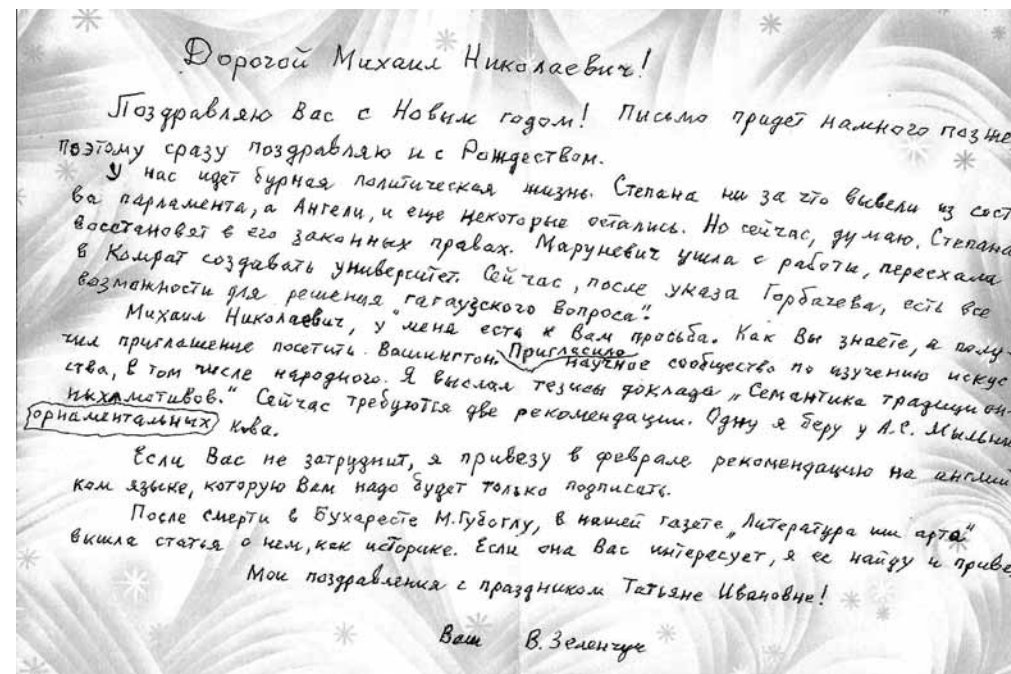 Дорогой Михаил Николаевич!
Поздравляю Вас с Новым годом! Письмо придет намного позже
поэтому сразу поздравляю и с Рождеством.
У нас идет бурная политическая жизнь. Степана ни за что вывели из сост
ва парламента, а Ангели, и еще некоторые остались. Но сейчас, думаю, Степана
восстановят в его законных правах. Маруневич ушла с работы, переехала
в Комрат создавать университет. Сейчас, после указа Горбачева, есть все
возможности для решения "гагаузского вопроса".
Михаил Николаевич, у меня есть к Вам просьба. Как Вы знаете, я полу-
чил приглашение посетить Вашингтон. Пригласило научное сообщество по изучению искус
ства, в том числе народного. Я выслал тезисы доклада „Семантика традицион-
ных мотивов." Сейчас требуются две рекомендации. Одну я беру у А.С. Мыльни
орнаментальных кова.
Если Вас не затруднит, я привезу в феврале рекомендацию на англий
ком языке, которую Вам надо будет только подписать.
После смерти в Бухаресте М.Губоглу, в нашей газете „Литература ши арта"
вышла статья о нем, как историке. Если она Вас интересует, я ее найду и приве
Мои поздравления с праздником Татьяне Ивановне!
Ваш В. Зеленчук